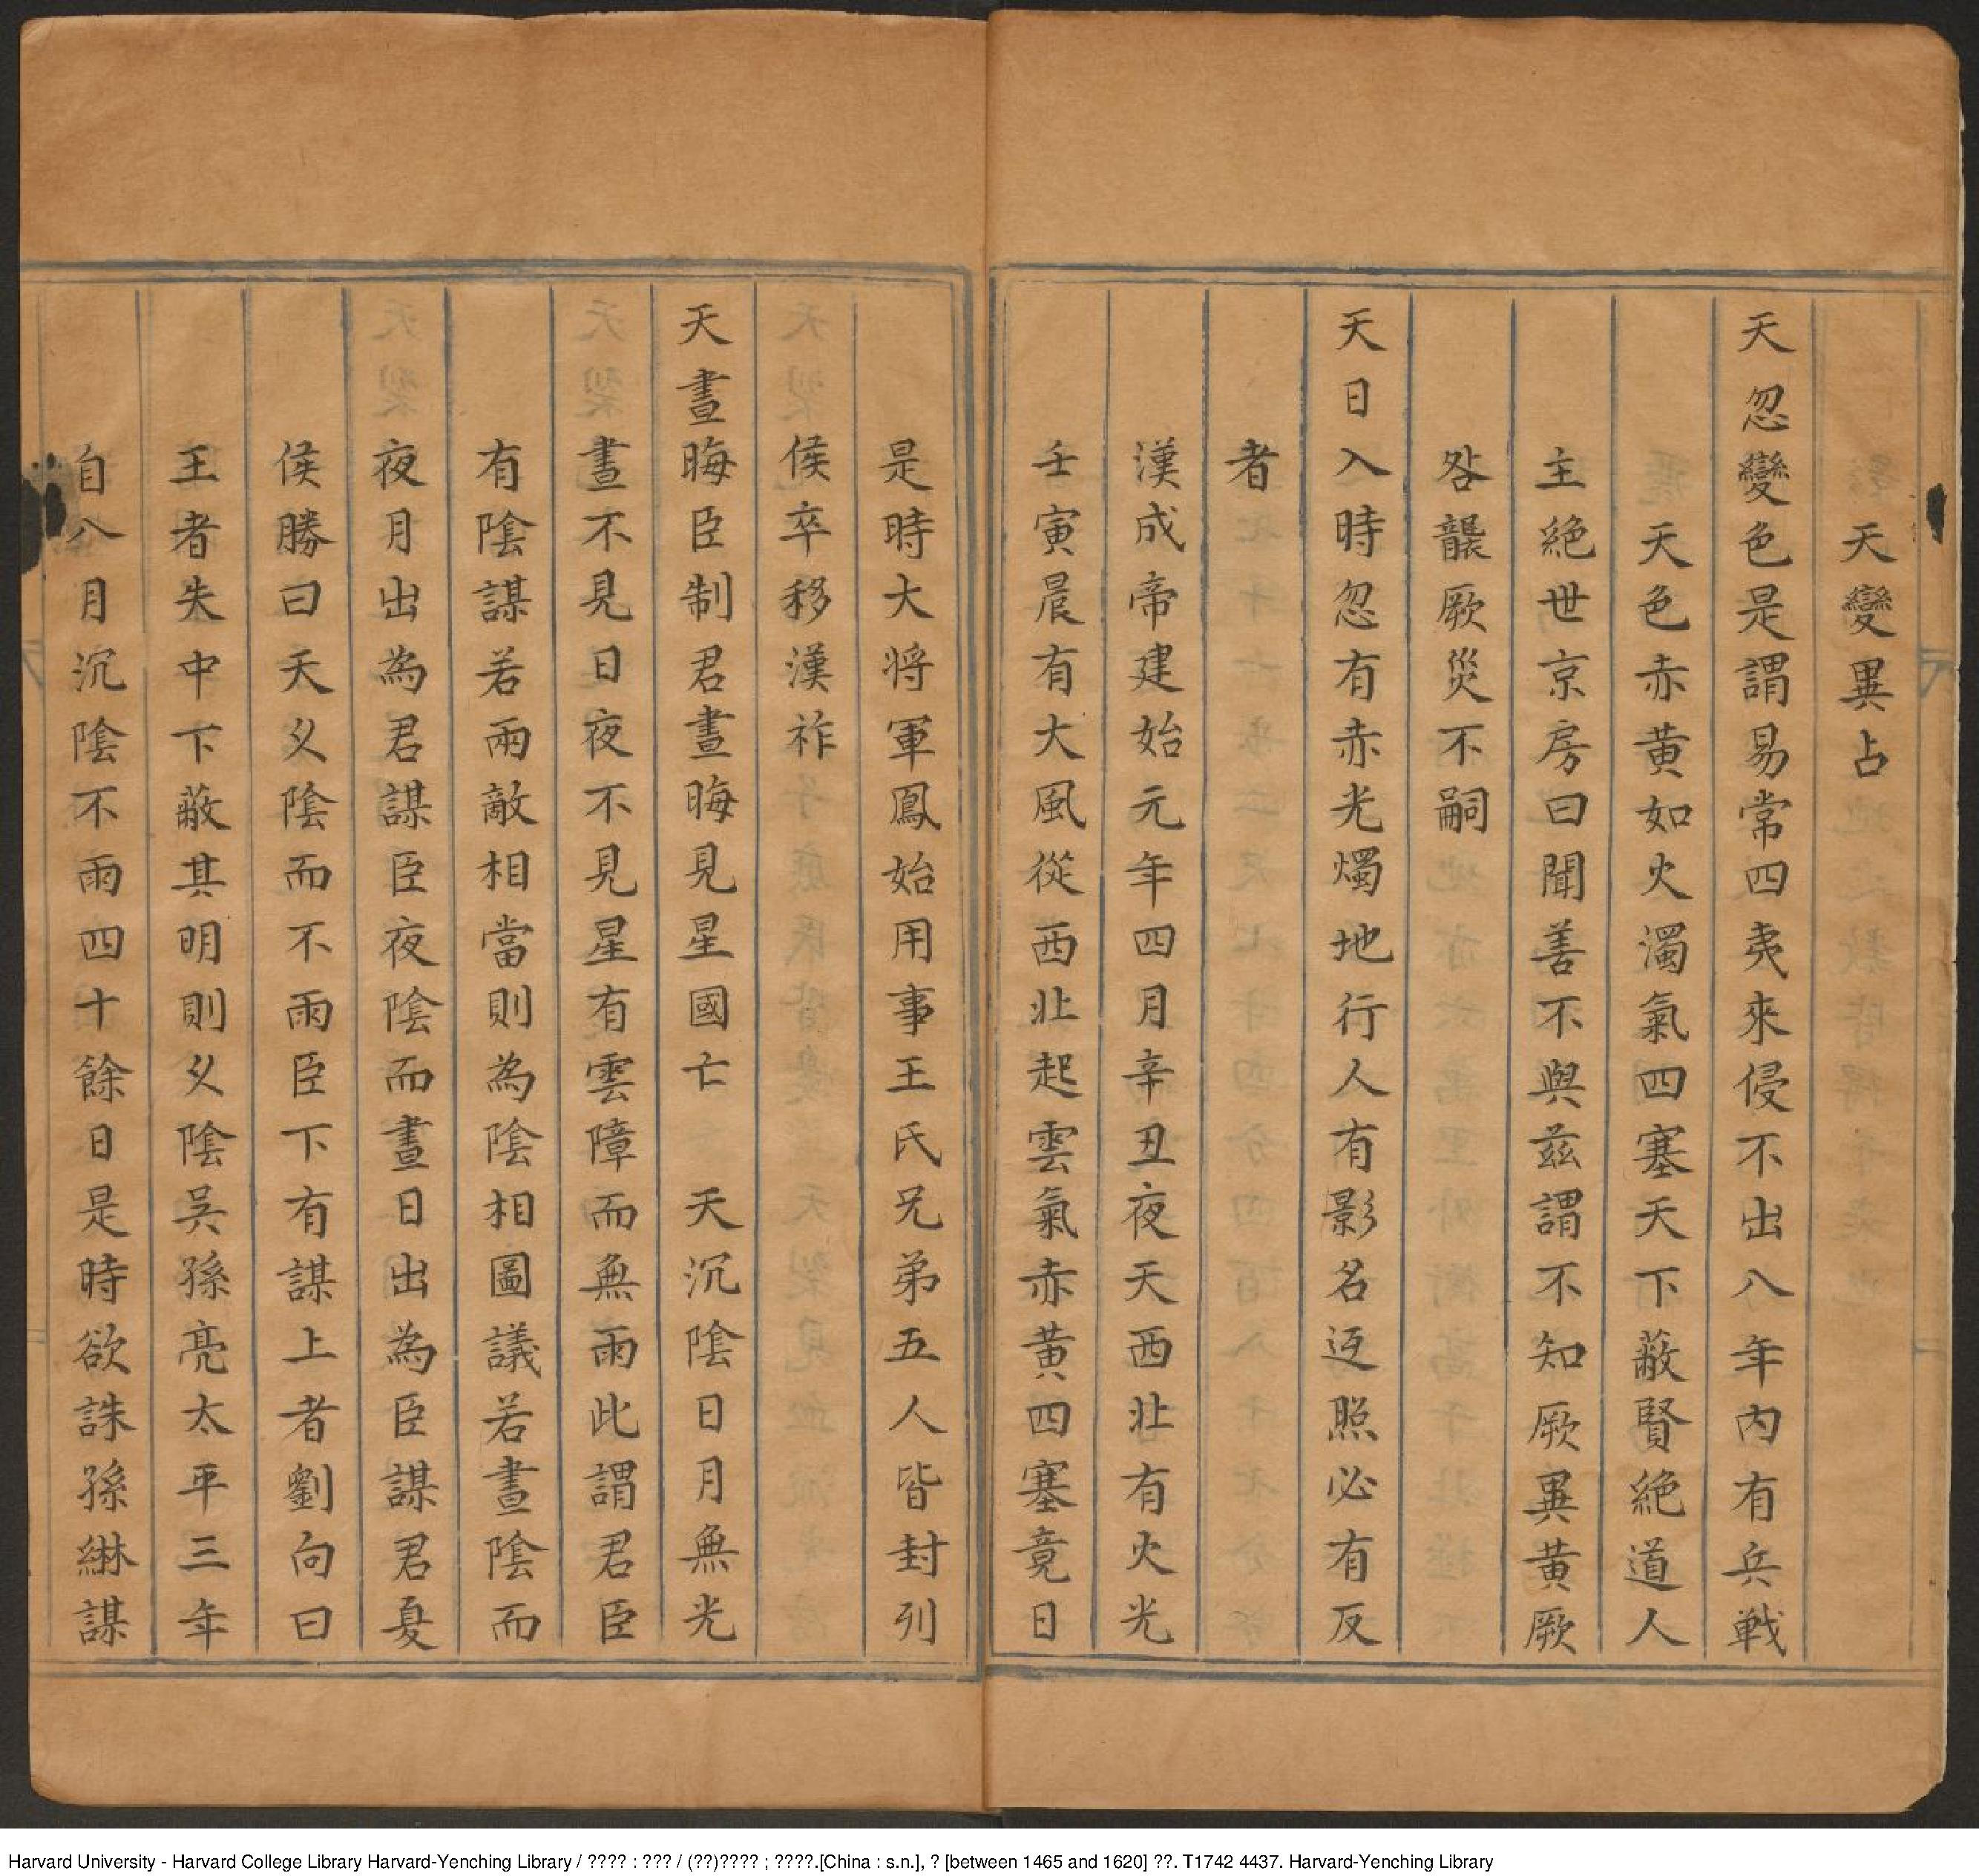 天變異占
天忽變色是謂易常四夷來侵不出八年內有兵戰
天色赤黃如火濁氣四塞天下蔽賢絕道人
主絕世京房曰聞善不與茲謂不知厥異黃厥
咎聾厥災不嗣
天日入時忽有赤光燭地行人有影名返照必有反
者
漢成帝建始元年四月辛丑夜天西北有火光
壬寅晨有大風從西北起雲氣赤黃四塞竟日
是時大將軍鳳始用事王氏兄弟五人皆封列
侯卒移漢祚
天晝晦臣制君晝晦見星國亡　天沉陰日月無光
晝不見日夜不見星有雲障而無雨此謂君臣
有陰謀若兩敵相當則為陰相圖議若晝陰而
夜月出為君謀臣夜陰而晝日出為臣謀君夏
侯勝曰天乆陰而不雨臣下有謀上者劉向曰
王者失中下蔽其明則乆陰吳孫亮太平三年
自八月沉陰不雨四十餘日是時欲誅孫綝謀
Harvard University - Harvard College Library Harvard-Yenching Library / ???? : ??? / (??)???? ; ????.[China : s.n.], ? [between 1465 and 1620] ??. T1742 4437. Harvard-Yenching Library